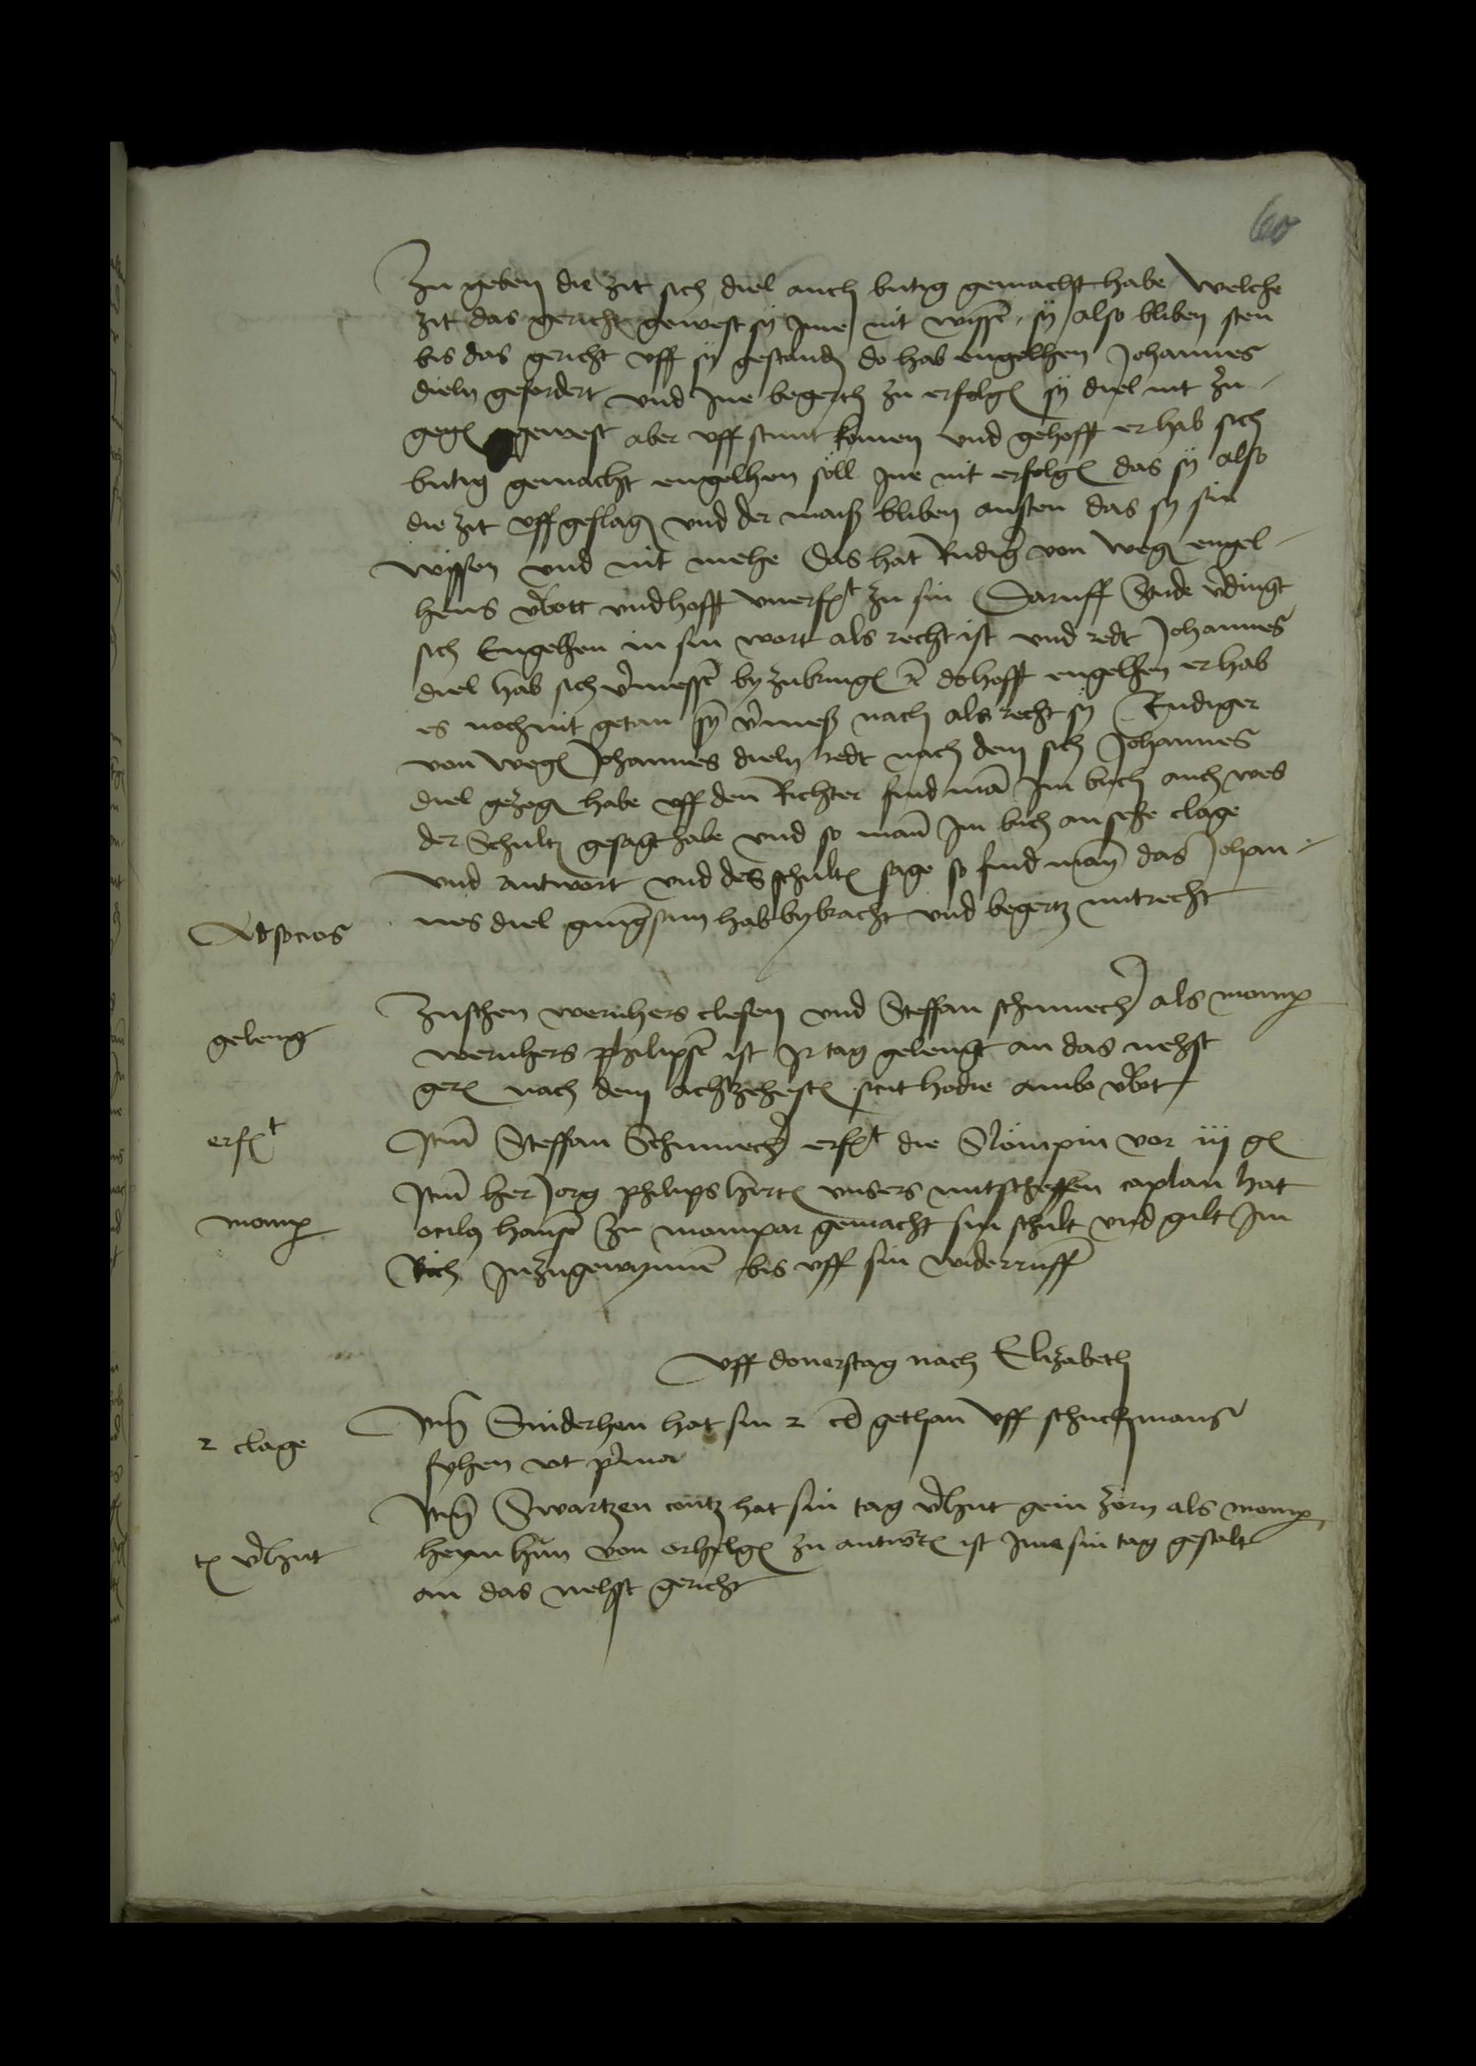 60
Zu geben die zit sich diel auch butig gemacht habe welche
zit das gericht gewest sy Ime nit wissen sy also bliben sten
bis das gericht uff sy gestanden do hab engelhen Johannes
dieln gefordert und Ine begerth zu erfolgen sy diel nit zu
gegen gewest aber uff stunt komen und gehofft er hab sich
butig gemacht engelhen soll Ine nit erfolgen das sy also
die zit uffgeslagen und der maiß bliben ansten das sy sin
wissen und nit mehe das hat Rudiger von wegen engel
hens verbott und hofft unerfolgt zu sin Daruff Ende verdingt
sich Engelhen in sin wort als recht ist und redt Johannes
diel hab sich vermessen byzubringen etc do hofft engelhen er hab
es noch nit getan sin vermeß nach als recht sy Rudiger
von wegen Johannes dieln redt nach dem sich Johannes
diel gezogen habe uff den Richter find man Im buch auch wes
der Schultes gesagt habe und so man Im buch ansehe clage
und antwort und des schultes sage so find man das Johan
nes diel gnugsam hab bybracht und begertz mit recht
Ad socios
Zuschen wernhers clesen und Steffan schumecher als momper
wernhers philipsen ist Ir tag gelengt an das nehst
gericht nach dem achtzehesten sicut hodie ambo verbot
geleng
Item Steffan Schumecher erfolgt die Slompin vor iij g
erfolgt
Item her Jorg philips hirten unsers mitscheffen caplan hat
ocilg hansen zu mompar gemacht sin schult und gilt Im
Rich Inzugewynnen bis uff sin widerruffen
momper
Uff donerstag nach Elizabeth
Item Suiderhen hat sin 2 cl gethan uff schuchmans
fyhen ut prima
2 clage
Item Swartzen contz hat sin tag verhut gein zorn als momper
heyn hun von orhelgen zu antworten ist Ime sin tag gestalt
an das nehst gericht
tag verhut